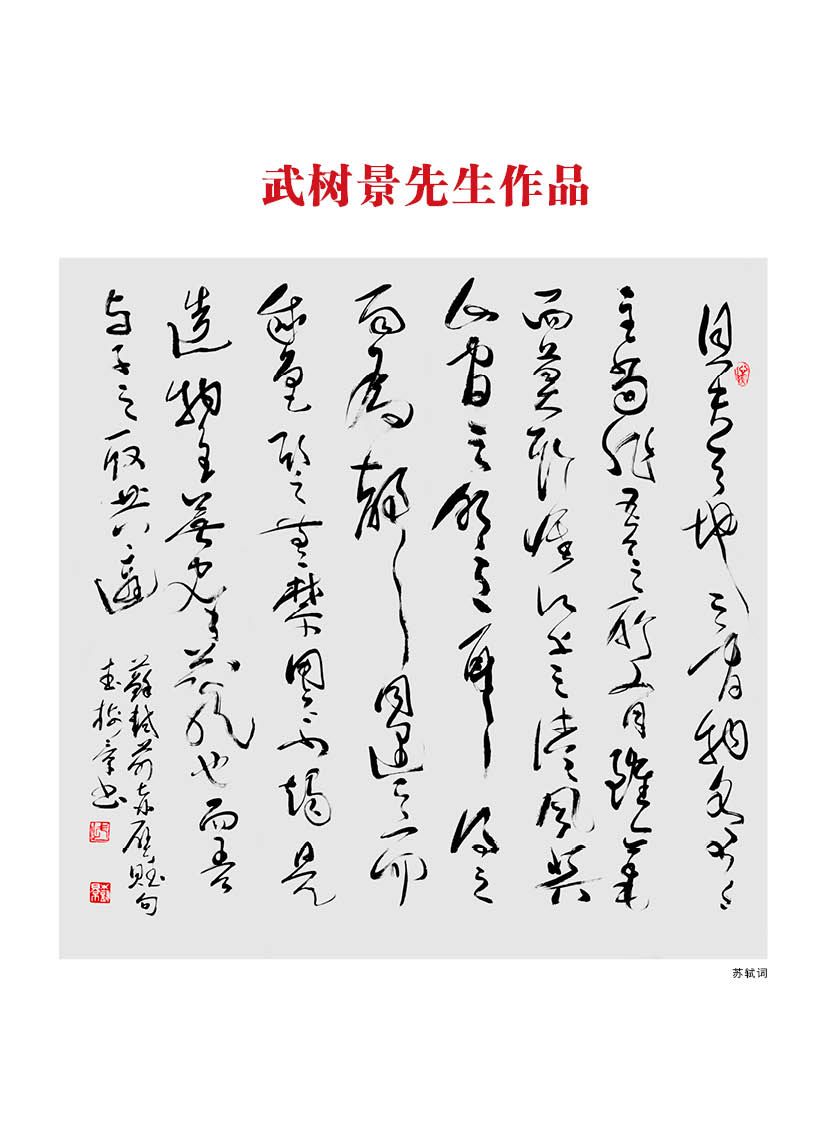 武树景先生作品
且夫天地之間物各有
主苟非吾之所有雖一毫
而莫取惟江上之清風與
山間之明月耳得之
而為聲目遇之而
成色取之無禁用之不竭是
造物者之無盡藏也而吾
与子之所共適
蘇軾前赤壁賦句
武樹景書
苏轼词